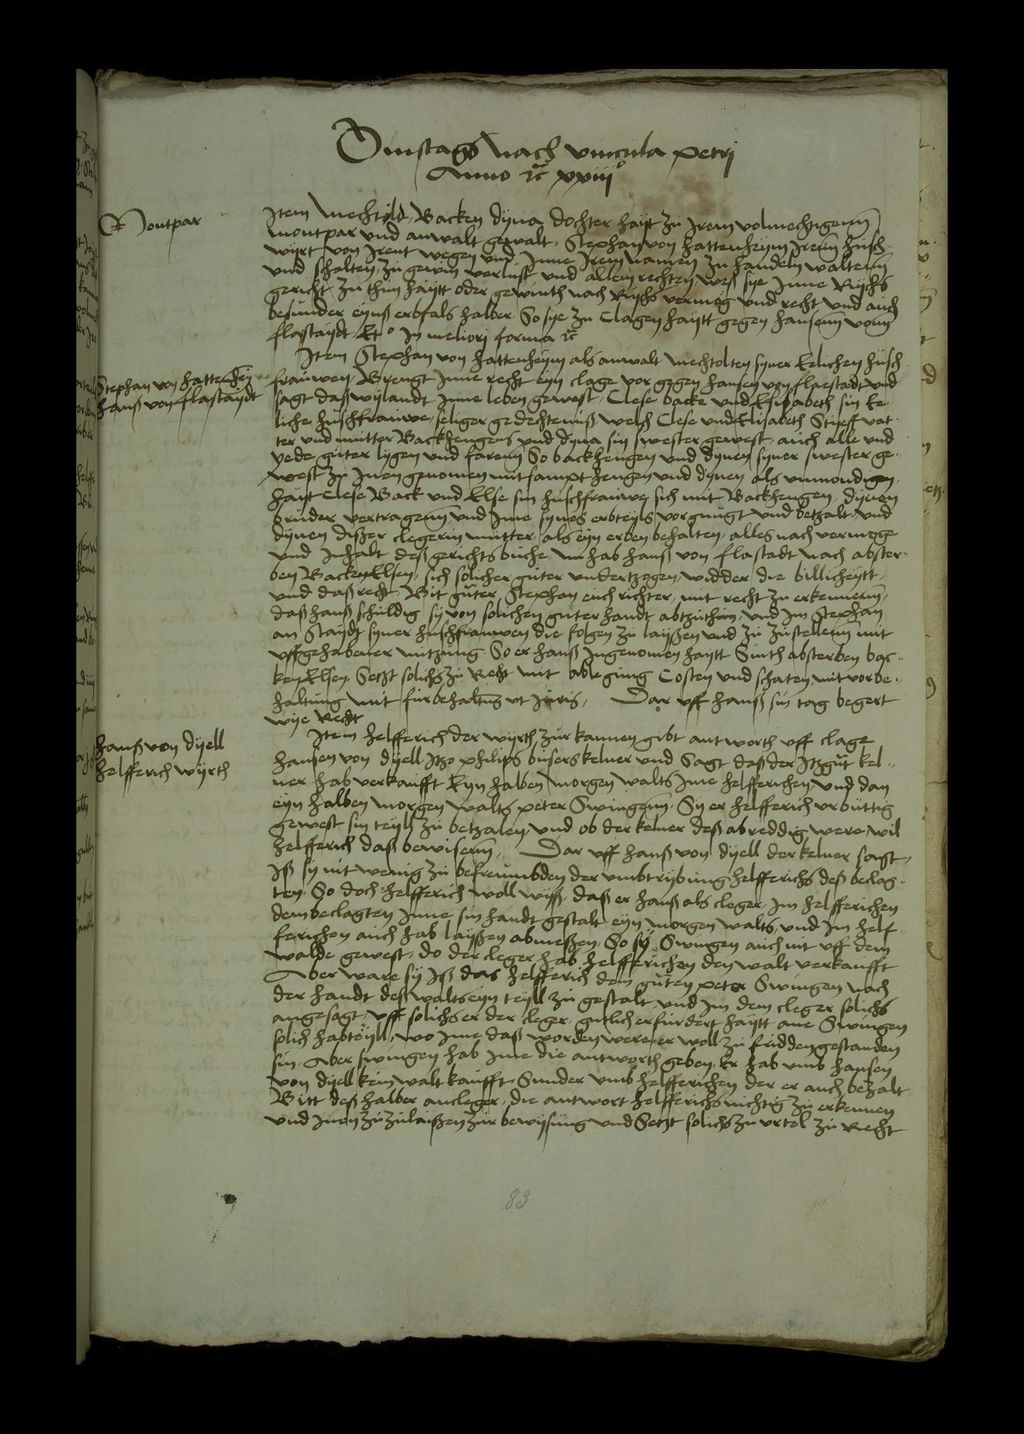 Dinstags nach vincula petri
Anno ꝛc xxiii°
Montpar
Item Mechtild Backen dyna dochter hait zu Irem volmechtigenn
montpar und anwalt gewalt Stephan von Hattenheym Irenn husch
wyrt von Irent wegen und Inne Irem namen zu handeln waltenn
und schalten zu gewin verlust und allem rechten weß sye Inne Rychs
gericht zu thun haytt oder gewinth nach Rychs vermog und recht und auch
besunder eynß erbfals halber So sye zu Clagen haytt gegen hansenn vonn
flastaydt &c° In meliori forma ꝛc
Stephan von Hattenheym
hanß von flastaydt
Item Stephan von Hattenheym als anwalt mechtolten syner Eelichen husch
frauwen Brengt Inne recht eyn clage vor gegen hansen von flaestadt und
sagt daß wylandt Inne leben gewest Clese backe und Elisabeth sin Ee
liche huschfrauwe seliger gedechteniß welch Clese und Elisabeth Stieff vat
ter und mutter Backhengens und dyna sin swester gewest auch alle und
yede guter lygen und farenn So backhengen und dynen syner swester ge
west zu Inen genomen mit sampt hengen und dynen als unmondigen
hayt Clese Back und Else sin huschfrauwe sich mit Backhengen dynen
bruder vertragenn und Ime synes erbteyls vorgnugt und betzalt und
dynen dißer clegerin mutter als eyn erben behalten alles nach vermoge
und Inhalt deß gerichts buche nu hab hanß von flastadt nach abster
ben Backen Elsen sich solicher guter undertzogen widder die billicheytt
und daß recht Bit guter Stephan euch richter mit recht zu erkennenn
daß hanß schuldig sy von solichen guter handt abtzuthun und Im Stephan
an Staydt syner huschfrauwen die folgen zu laißen und zu zustellenn mit
uffgehabener nutzung So er hanß Ingenomen haytt Sinth absterben bac
ken Elsen Setzt solichs zu Recht mit ablegung Costen und schaten mit vorbe
haltung mit furbehaltung ut Iuris Dar uff hanß sin tag begert
wye Recht
hanß von dyell
helfferich wyrth
Item helfferich der wyrth zur kannen gibt antworth uff clage
hansen von dyell Itzo philips buserskelner und Sagt daß der Itzgut kel
ner hab verkaufft Eyn halben morgen walts Ime helfferichen und dan
eyn halben morgen walts peter Swingenn Sy er helfferich urbuttig
gewest sin teyll zu betzalen und ob der kelner deß abreddig were wil
helfferich daß bewisenn Dar uff hanß von dyell der kelner sagt
Iß sy nit wenig zu befreumbden der umbtrybung helfferichs deß beclag
ten So doch helfferich woll wiß daß er hanß als cleger Im helfferichen
dem beclagten Inne sin handt gestalt eyn morgen walts und Im helf
ferichen auch hab laißen abmeßen So sy Swingen auch nit uff dem
walde gewest do der cleger hab helfferichen den walt verkaufft
Aber ware sy Iß das helfferich dem guten peter Swingen nach
der handt deß walts eyn teyll zu gestalt und Im dem cleger solichs
angesagt uff solichs er der cleger gutlich erfurdert haytt ane Swingen
solich habteyll wo Ime daß worden were er woll zu fridden gestanden
sin Aber swingen hab Ime die antworth geben Er hab umb hansen
von dyell kein walt kaufft Sunder umb helfferichen der er auch bezalt
Bitt deß halber ancleger die antwort helfferichs nichtig zu erkennen
und Inen zuzulaißen zur bewysung und Setzt solichs zu urtel zu Recht
83